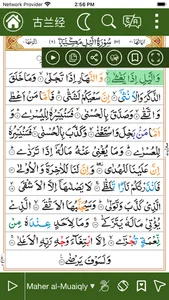 Network Provider 2:56 PM
古兰经
سُوْرَةُ الَّيْلِ مَكِّيَّةٌ
وَالَّيْلِ اِذَا يَغْشٰى وَالنَّهَارِ اِذَا تَجَلّٰى وَمَا خَلَقَ
الذَّكَرَ وَالْاُنْثٰى اِنَّ سَعْيَكُمْ لَشَتّٰى فَاَمَّا مَنْ اَعْطٰى
وَاتَّقٰى وَصَدَّقَ بِالْحُسْنٰى فَسَنُيَسِّرُهٗ لِلْيُسْرٰى
وَاَمَّا مَنْۢ بَخِلَ وَاسْتَغْنٰى وَكَذَّبَ بِالْحُسْنٰى فَسَنُيَسِّرُهٗ
لِلْعُسْرٰى وَمَا يُغْنِيْ عَنْهُ مَالُهٗٓ اِذَا تَرَدّٰى
اِنَّ عَلَيْنَا لَلْهُدٰى وَاِنَّ لَنَا لَلْاٰخِرَةَ وَالْاُوْلٰى
فَاَنْذَرْتُكُمْ نَارًا تَلَظّٰى لَا يَصْلٰىهَآ اِلَّا الْاَشْقَى
الَّذِيْ كَذَّبَ وَتَوَلّٰى وَسَيُجَنَّبُهَا الْاَتْقَى الَّذِيْ
يُؤْتِيْ مَالَهٗ يَتَزَكّٰى وَمَا لِاَحَدٍ عِنْدَهٗ مِنْ
نِّعْمَةٍ تُجْزٰٓى اِلَّا ابْتِغَآءَ وَجْهِ رَبِّهِ الْاَعْلٰى
وَلَسَوْفَ يَرْضٰى
Maher al-Muaiqly